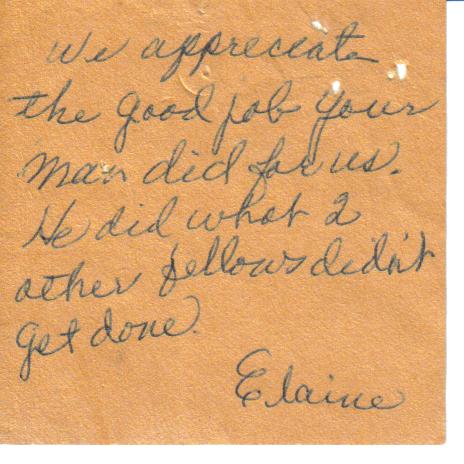 We appreciate
the good job your
man did for us.
He did what 2
other fellows didn't
get done.
Elaine